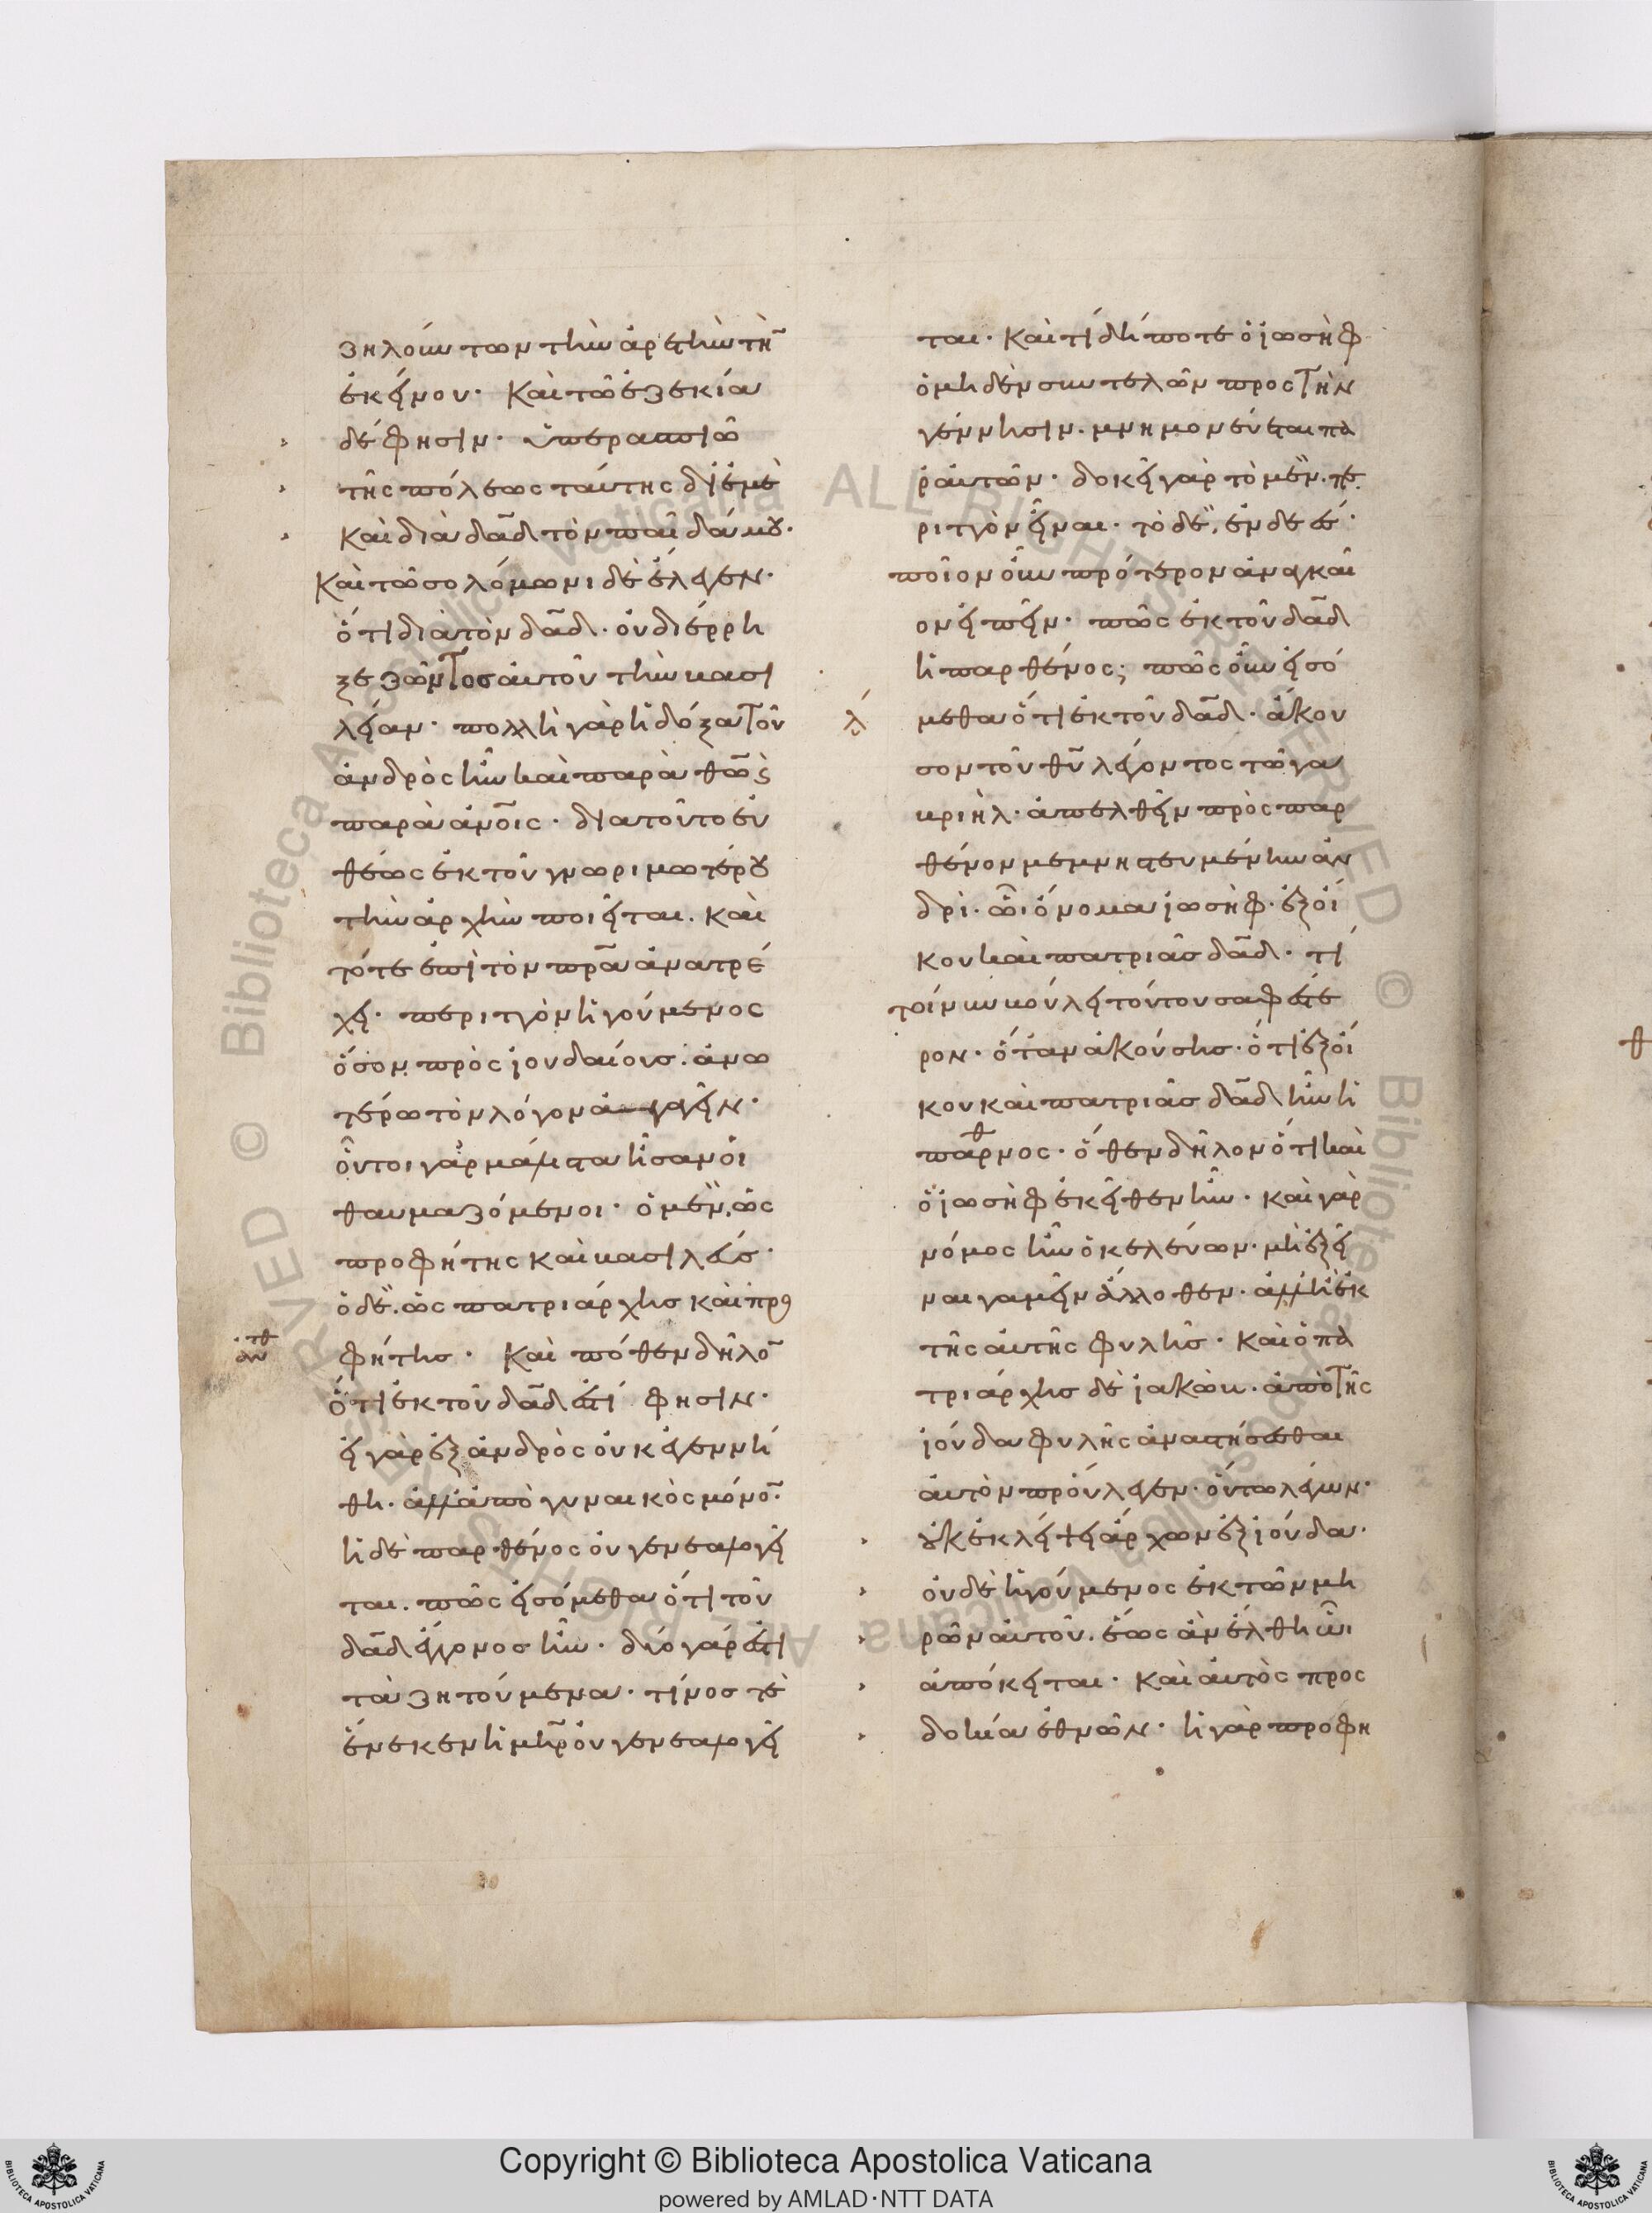 ζηλούντων τὴν ἀρετὴν τὴν
ἐκείνου· Καὶ τῶ ἐζεκία
δέ φησιν· ὑπερασπιῶ
τῆς πόλεως ταύτης δι' ἐμὲ
καὶ διὰ δα̅δ τὸν παῖδά μου·
Καὶ τῶ σολόμωνι δὲ ἔλεγεν·
ὅτι διὰ τὸν δα̅δ· οὐ διέρρη
ξε ζῶντος αὐτοῦ τὴν βασι
λείαν· πολλὴ γὰρ ἡ δόξα τοῦ
ἀνδρὸς ἦν καὶ παρὰ θω̅ καὶ
παρὰ ἀν̅οις· διὰ τοῦτο εὐ
θέως ἐκ τοῦ γνωριμωτέρου
τὴν ἀρχὴν ποιεῖται. καὶ
τότε ἐπὶ τὸν πρ̅α ἀνατρέ
χει· περιττὸν ἡγούμενος
ὅσον πρὸς ἰουδαίους· ἀνω
τέρω τὸν λόγον ἀγαγεῖν·
οὗτοι γὰρ μάλιστα ἦσαν οἱ
θαυμαζόμενοι· ὁ μὲν, ὡς
προφήτης καὶ βασιλεύς·
ὁ δὲ, ὡς πατριάρχης καὶ προ
φήτης· Καὶ πόθεν δῆλον
ὅτι ἐκ τοῦ δα̅δ ἐστί φησιν·
εἰ γὰρ ἐξ ἀνδρὸς οὐκ ἐγεννή
θη· ἀλλ' ἀπὸ γυναικὸς μόνον·
ἡ δὲ παρθένος οὐ γενεαλογεῖ
ται. πῶς εἰσόμεθα ὅτι τοῦ
δα̅δ ἔγγονος ἦν· δύο γάρ ἐστι
τὰ ζητούμενα· τίνος τὲ
ἕνεκεν ἡ μη̅ρ οὐ γενεαλογεῖ
ται· Καὶ τί δήποτε ὁ ἰωσὴφ
ὁ μηδὲν συντελῶν προς τὴν
γέννησιν. μνημονεύεται πα
ρ' αὐτῶν· δοκεῖ γὰρ τὸ μὲν, πε
ριττὸν εἶναι· τὸ δὲ, ἐνδεές·
ποῖον οὖν πρότερον ἀναγκαῖ
ον εἰπεῖν· πῶς ἐκ τοῦ δα̅δ
ἡ παρθένος; πῶς οὖν εἰσό
μεθα ὅτι ἐκ τοῦ δα̅δ· ἄκου
σον τοῦ θυ̅ λέγοντος τῶ γα
βριὴλ· ἀπελθεῖν πρὸς παρ
θένον μεμνηστευμένην ἀν
δρὶ· ὧι ὄνομα ἰωσὴφ· ἐξ οἴ
κου καὶ πατριᾶς δα̅δ· τί
τοίνυν βούλει τούτου σαφέστε
ρον· ὅταν ἀκούσης· ὅτι ἐξ οἴ
κου καὶ πατριᾶς δα̅δ ἦν ἡ
παρθνος· ὅθεν δῆλον ὅτι καὶ
ὁ ἰωσὴφ ἐκεῖθεν ἦν· καὶ γὰρ
νόμος ἦν ὁ κελεύων· μὴ ἐξεῖ
ναι γαμεῖν ἄλλοθεν· ἀλλ' ἢ ἐκ
τῆς αὐτῆς φυλῆς· Καὶ ὁ πα
τριάρχης δὲ ἰακὼβ· ἀπὸ τῆς
ἰούδα φυλῆς ἀναστήσεσθαι
αὐτὸν προὔλεγεν· οὕτω λέγων·
οὐκ ἐκλείψει ἄρχων ἐξ ἰούδα·
οὐδὲ ἡγούμενος ἐκ τῶν μη
ρῶν αὐτοῦ. ἕως ἂν ἔλθη ὧι
ἀπόκειται· Καὶ αὐτὸς προς
δοκία ἐθνῶν· ἡ γὰρ προφη
Copyright © Biblioteca Apostolica Vaticana
powered by AMLAD·NTT DATA